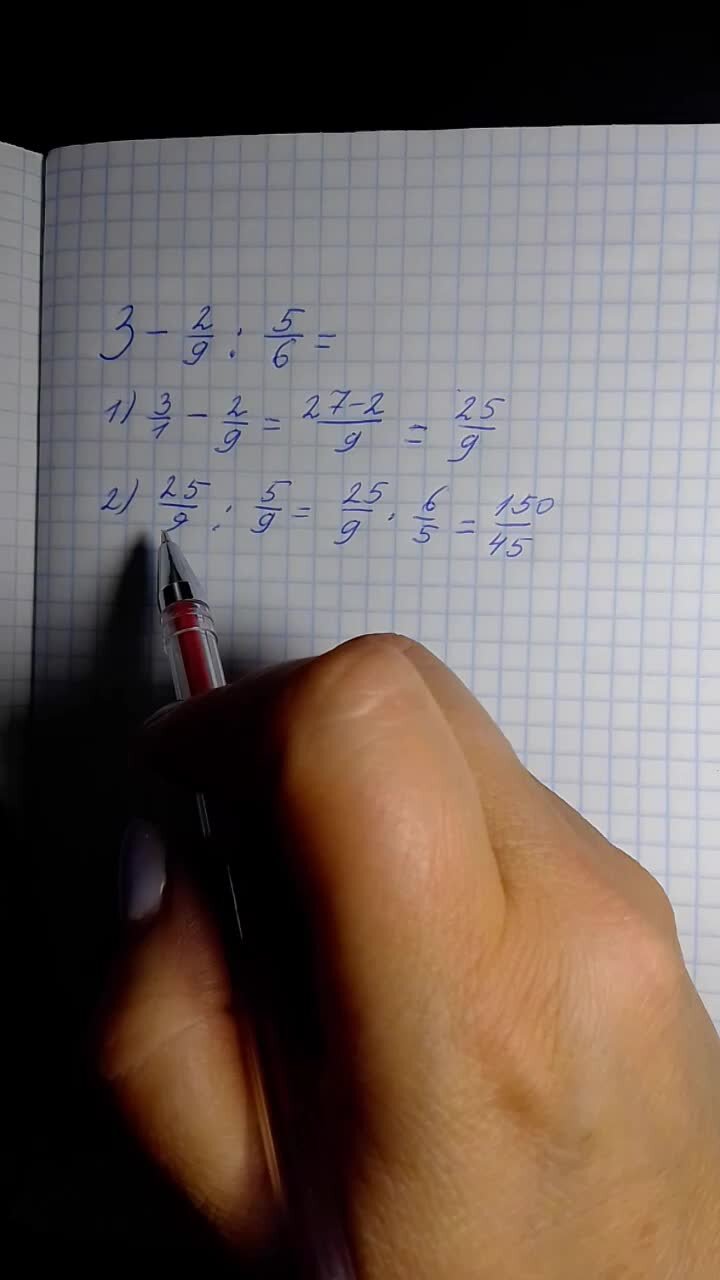 3 - 2/9 : 5/6 =
1) 3/1 - 2/9 = 27-2/9 = 25/9
2) 25/9 : 5/9 = 25/9 · 6/5 = 150/45